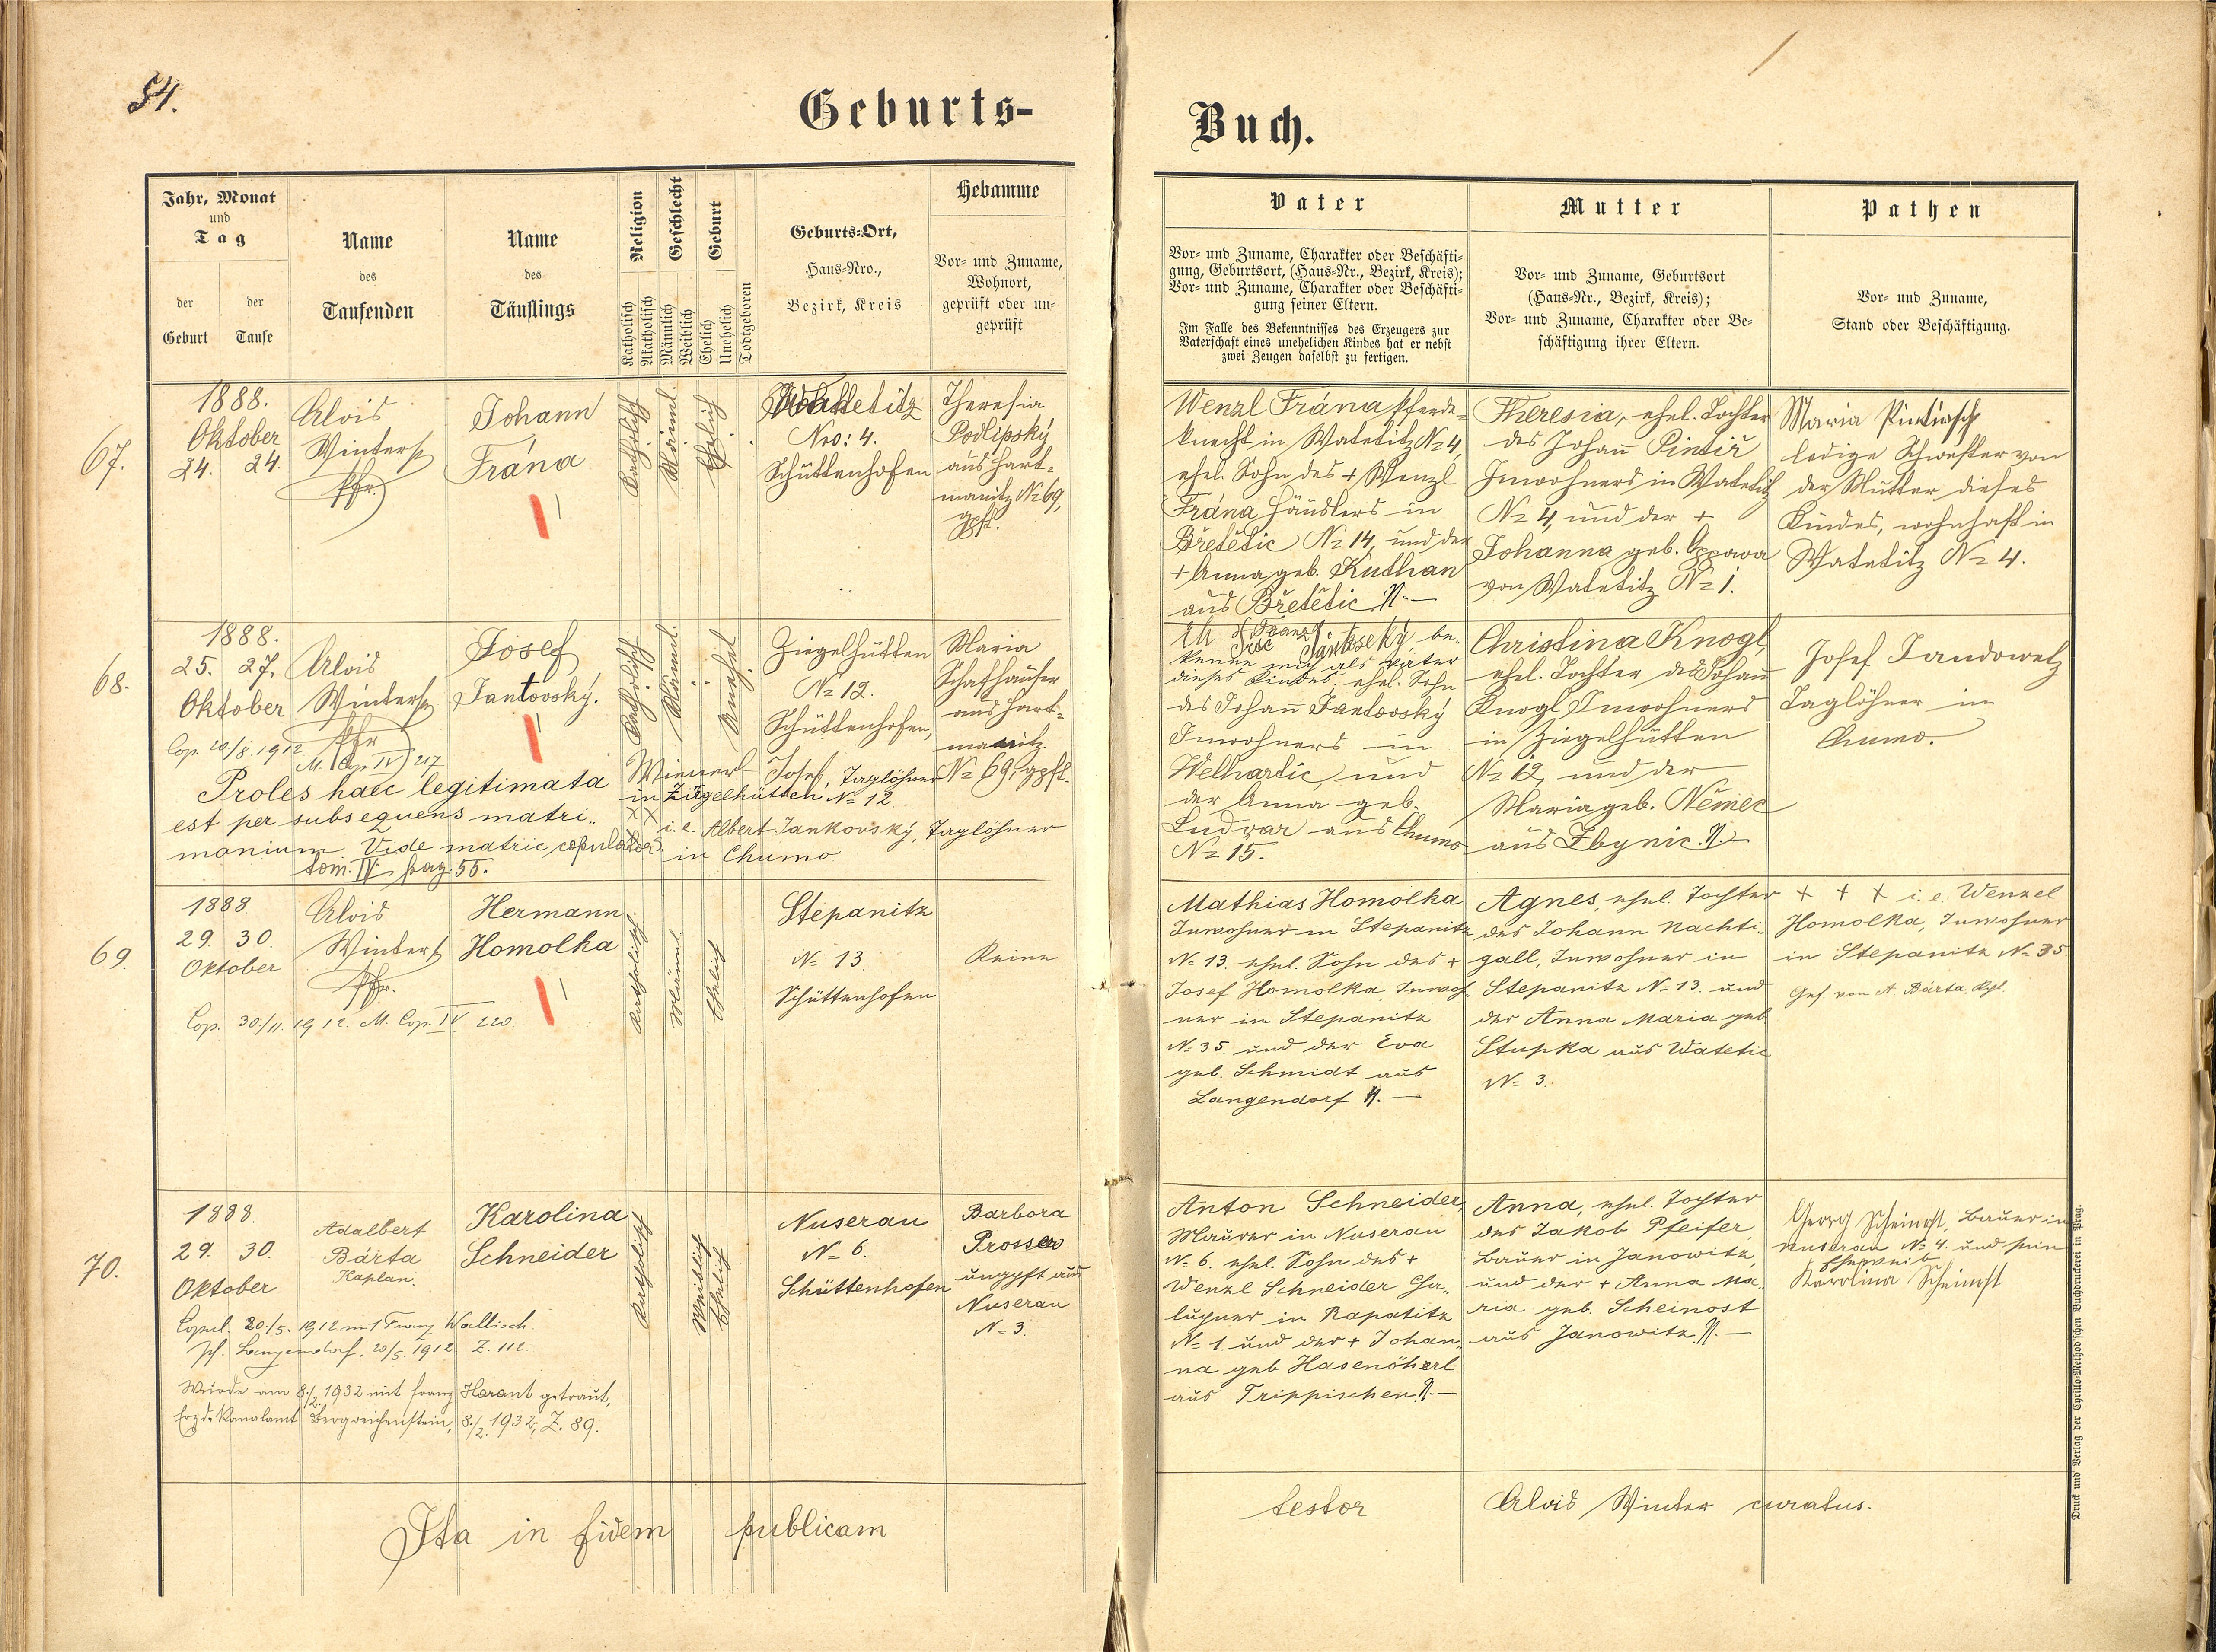 54.
Geburts-
Buch.
Jahr, Monat
und
Tag
der
Geburt
der
Taufe
Name
des
Taufenden
Name
des
Täuflings
Religion
Katholisch
Akatholisch
Geschlecht
Männlich
Weiblich
Geburt
Ehelich
Unehelich
Todtgeboren
Geburts-Ort,
Haus-Nro.,
Bezirk, Kreis
Hebamme
Vor- und Zuname,
Wohnort,
geprüft oder un-
geprüft
Vater
Vor- und Zuname, Charakter oder Beschäfti-
gung, Geburtsort, (Haus-Nr., Bezirk, Kreis);
Vor- und Zuname, Charakter oder Beschäfti-
gung seiner Eltern.
Im Falle des Bekenntnisses des Erzeugers zur
Vaterschaft eines unehelichen Kindes hat er nebst
zwei Zeugen daselbst zu fertigen.
Mutter
Vor- und Zuname, Geburtsort
(Haus-Nr., Bezirk, Kreis);
Vor- und Zuname, Charakter oder Be-
schäftigung ihrer Eltern.
Pathen
Vor- und Zuname,
Stand oder Beschäftigung.
67.
1888.
Oktober
24. 24.
Alois
Winter
Pfr.
Johann
Frána
Katholisch
Männl.
Ehelich
Nro: 4.
Schüttenhofen
Theresia
Podlipský
aus Hart-
manitz No 69,
gpft.
Wenzl Frána, Pferde-
knecht in Watetitz No 4,
ehel. Sohn des + Wenzl
Frána Häuslers in
Břetětic No 14, und der
+ Anna geb. Kuthan
aus Břetětic N. —
Theresia, ehel. Tochter
des Johann Pintíř
Inwohners in Watetitz
No 4, und der +
Johanna geb. Oppawa
von Watetitz No 1.
Maria Pintirsch
ledige Schwester von
der Mutter dieses
Kindes, wohnhaft in
Watetitz No 4.
68.
1888.
25. 27.
Oktober
Alois
Winter
Pfr
Josef
Jantovský.
Katholisch
Männl.
Unehel
Ziegelhütten
No 12.
Schüttenhofen,
Maria
Schafhauser
aus Hart-
manitz
No 69, gpft.
Cop. 20/8. 1912
M. Cop. IV 217
Proles haec legitimata
est per subsequens matri-
monium Vide matric copulator.
tom. IV pag. 55.
Wiener Josef, Taglöhner
in Ziegelhütten No 12.
XX i. e. Albert Jankovský, Taglöhner
in Chumo
be-
kenne mich als Vater
dieses Kindes, ehel. Sohn
des Johann Jantovský
Inwohners in
Welhartic, und
der Anna geb.
Ludvar aus Chumo
No 15.
Christina Knogl,
ehel. Tochter des Johann
Knogl Inwohners
in Ziegelhütten
No 12, und der
Maria geb. Němec
aus Zbynic. N. —
Josef Jandowetz
Taglöhner in
Chumo.
69.
1888
29. 30.
Oktober
Alois
Winter
Pfr.
Hermann
Homolka
Katholisch
Männl.
Ehelich
Stepanitz
No 13.
Schüttenhofen
Keine
Cop. 30/11. 1912. M. Cop. IV 220.
Mathias Homolka
Inwohner in Stepanitz
No 13. ehel. Sohn des +
Josef Homolka, Inwoh-
ner in Stepanitz
No 35. und der Eva
geb. Schmidt aus
Langendorf N. —
Agnes, ehel. Tochter
des Johann Nachti-
gall, Inwohner in
Stepanitz No 13. und
der Anna Maria geb.
Stupka aus Watetic
No 3.
+ + + i. e. Wenzel
Homolka, Inwohner
in Stepanitz No 35.
Gef. von A. Bárta, Kpl.
70.
1888.
29. 30.
Oktober
Adalbert
Bárta
Kaplan.
Karolina
Schneider
Katholisch
Weiblich
Ehelich
Nuserau
No 6.
Schüttenhofen
Barbora
Prosser
ungpft aus
Nuserau
No 3.
Copul. 20./5. 1912 mit Franz Wallisch.
Pf. Langendorf. 20/5. 1912 Z. 112
Wurde am 8./2. 1932 mit Franz Harant getraut,
Erzdekanalamt Bergreichenstein, 8./2. 1932, Z. 89.
Anton Schneider,
Maurer in Nuserau
No 6. ehel. Sohn des +
Wenzl Schneider Cha-
lupner in Rapatitz
No 1. und der + Johan-
na geb Hasenöhrl
aus Trippischen N. —
Anna, ehel. Tochter
des Jakob Pfeifer,
Bauer in Janowitz,
und der + Anna Ma-
ria geb. Scheinost
aus Janowitz N. —
Georg Scheinost, Bauer in
Nuserau No 4. und sein
Eheweib
Karolina Scheinost
Ita in fidem publicam
testor
Alois Winter curatus.
Druck und Verlag der Cyrillo-Method'schen Buchdruckerei in Prag.